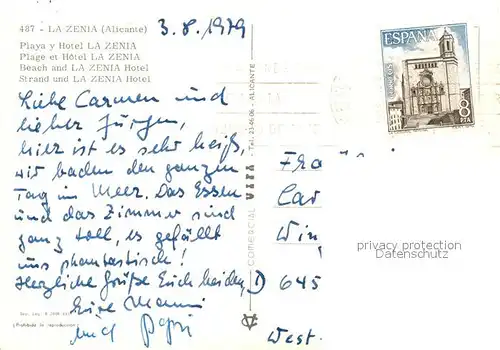 487 - LA ZENIA (Alicante)
3.8.1979
Playa y Hotel LA ZENIA
Plage et Hôtel LA ZENIA
Beach and LA ZENIA Hotel
Strand und LA ZENIA Hotel
Liebe Carmen und
lieber Jürgen,
hier ist es sehr heiß,
wir baden den ganzen
Tag im Meer. Das Essen
und das Zimmer sind
ganz toll, es gefällt
uns phantastisch!
Herzliche Grüße Euch beiden,
Eure Mammi
und Papi
(Prohibida la reproducción)
COMERCIAL VIPA - Tel. 23-46-06 - ALICANTE
ESPAÑA
8
PTA
Fra
Car
Win
D 645
West.
privacy protection